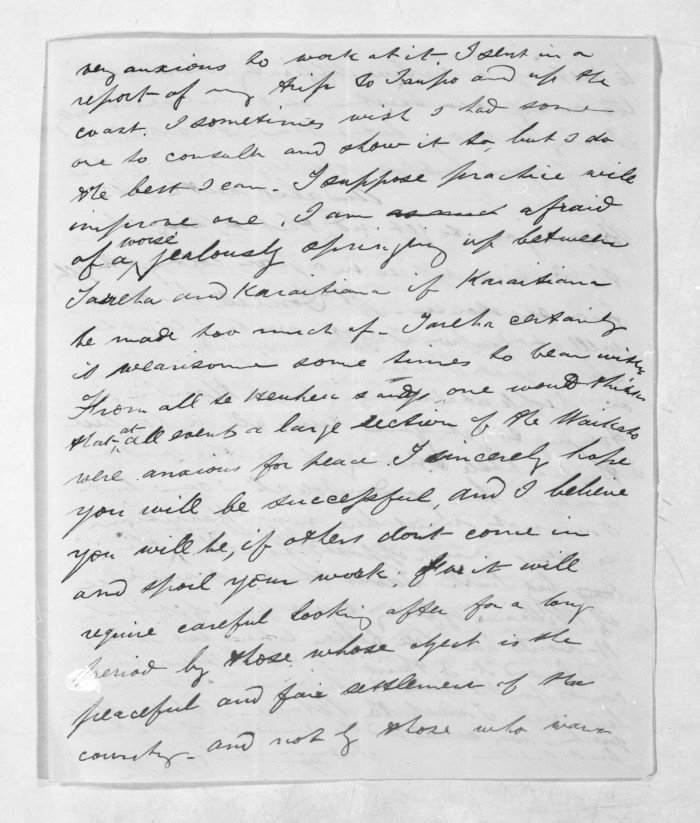 very anxious to work at it I sent in a
report of my trip to Taupo and up the
coast. I sometimes wish I had some
one to consult and show it to, but I do
the best I can. I suppose practice will
improve one. I am as much afraid
of a worse jealously springing up between
Tareha and Karaitiana if Karaitiana
be made too much of. Tareha certainly
is wearisome some times to bear with
From all te Heuheu says, one would think
that at all events a large section of the Waikato
were anxious for peace. I sincerely hope
you will be successful, and I believe
you will be, if others don't come in
and spoil your work, for it will
require careful looking after for a long
period by those whose object is the
peaceful and fair settlement of the
country - and not by those who want